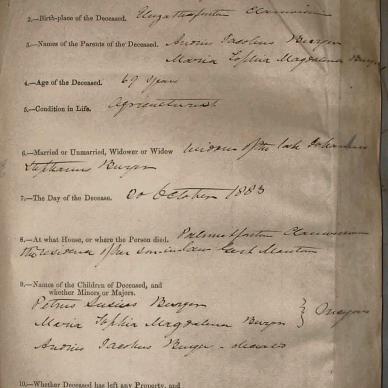 2.—Birth-place of the Deceased.
3.—Names of the Parents of the Deceased. Andries Jacobus Burger
Maria Sophia Magdalena Burger
4.—Age of the Deceased. 69 Years
5.—Condition in Life. Agriculturist
6.—Married or Unmarried, Widower or Widow Widow of the late Johannes
Stephanus Burger
7.—The Day of the Decease. 20 October 1883
8.—At what House, or where the Person died.
The residence of her son in law
9.—Names of the Children of Deceased, and
whether Minors or Majors.
Petrus Burger
Maria Sophia Magdalena Burger } Majors
Andries Jacobus Burger - deceased
10.—Whether Deceased has left any Property, and